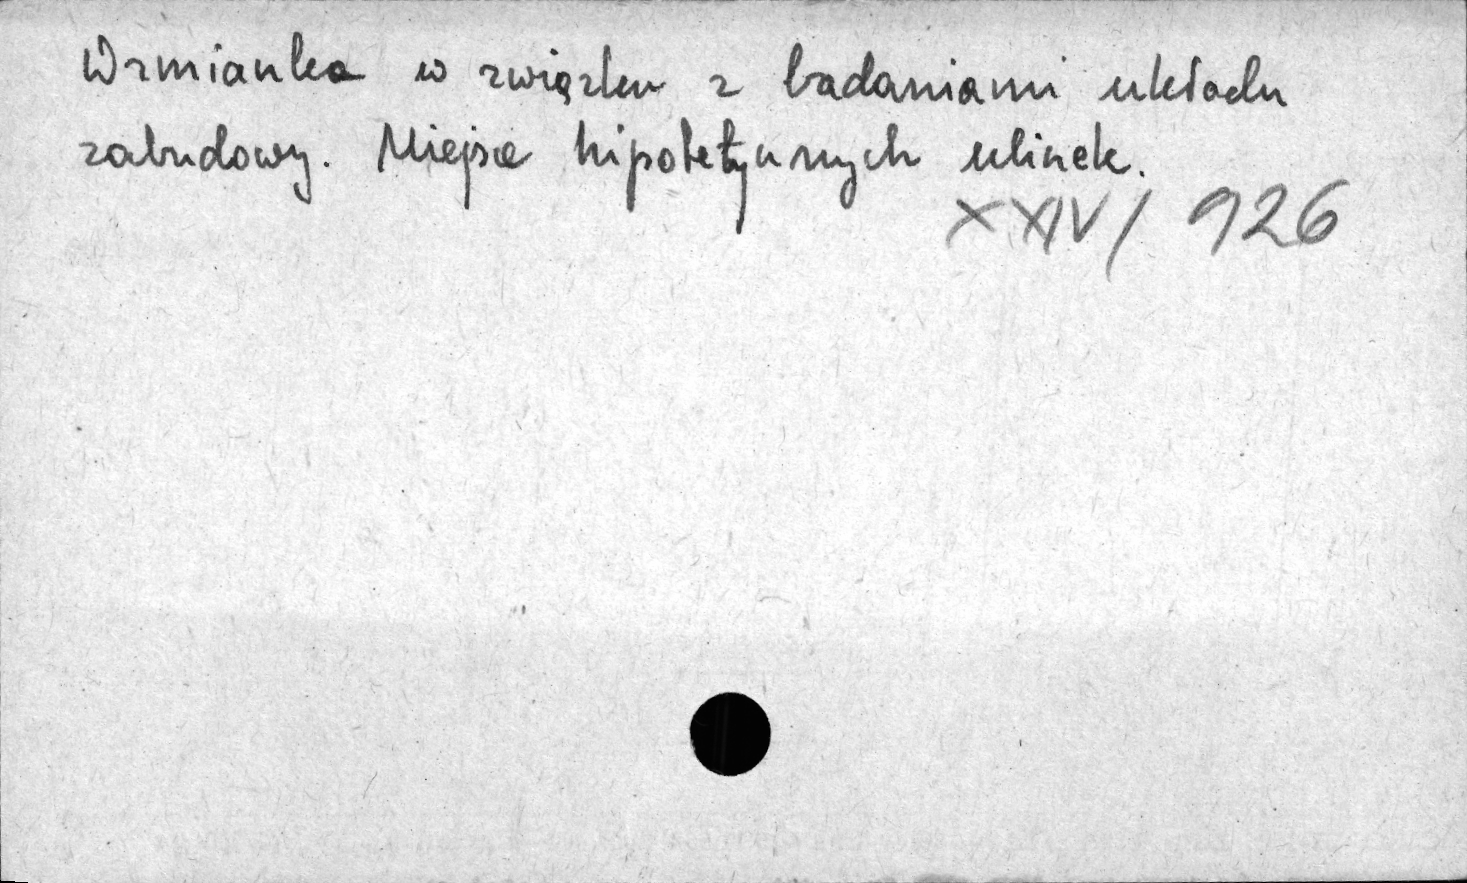 Wzmianka w związku z badaniami układu
zabudowy. Miejsce hipotetycznych ulinek.
XXIV/926